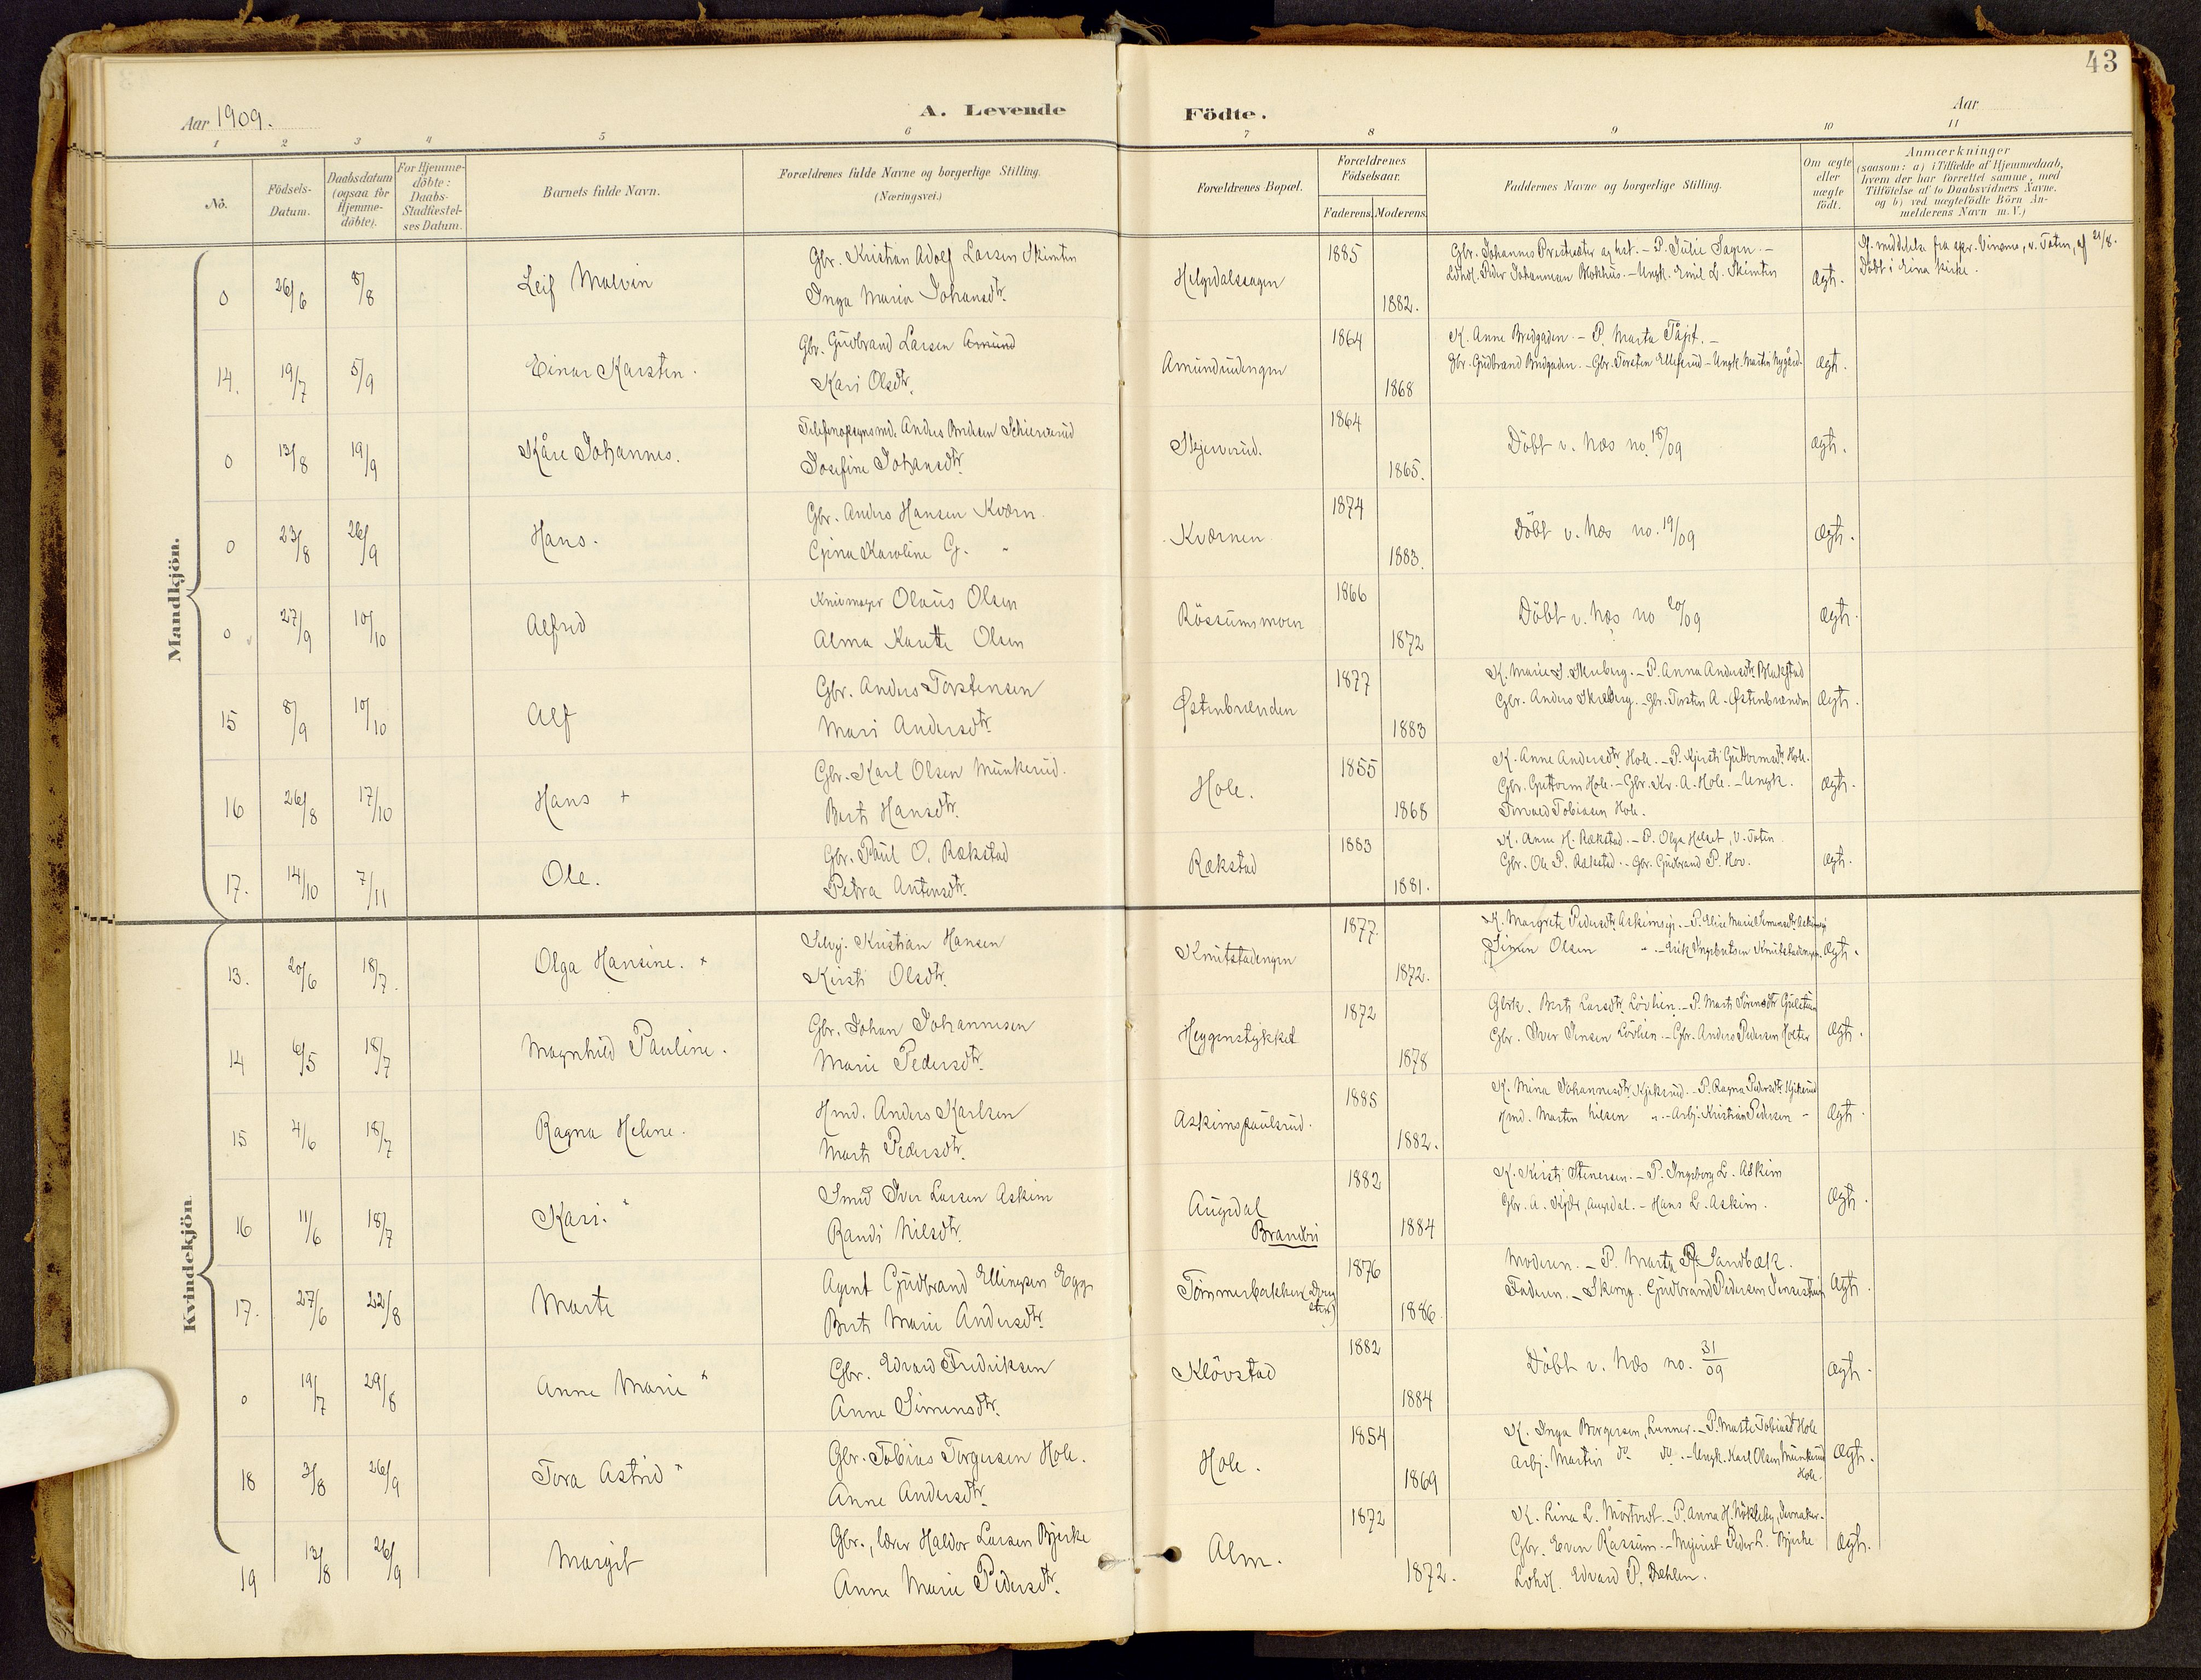 43
Aar 1909.
A. Levende
Födte.
Aar
1 2 3 4 5 6 7 8 9 10 11
Nô.
Födsels-Datum.
Daabsdatum (ogsaa for Hjemme-döbte).
For Hjemme-döbte: Daabs-Stadfæstel-ses Datum.
Barnets fulde Navn.
Forældrenes fulde Navne og borgerlige Stilling.
(Næringsvei.)
Forældrenes Bopæl.
Forældrenes Födselsaar.
Faderens. Moderens.
Faddernes Navne og borgerlige Stilling.
Om ægte eller uægte födt.
Anmærkninger
(saasom: a) i Tilfælde af Hjemmedaab,
hvem der har forrettet samme, med
Tilföielse af to Daabsvidners Navne.
og b) ved uægtefödte Börn An-
melderens Navn m. V.)
Mandkjön.
0 26/6 8/8 Leif Malvin
Gbr. Kristian Adolf Larsen Skimten
Inga Maria Johansdtr.
Helgedalssagen 1885 1882.
Gbr. Johannes Prestsæter og hst. - P. Julie Sagen. -
Ldhdl. Peder Johannesen Blokhus. - Ungk. Emil L. Skimten
Ægte.
Efl. meddelelse fra spr. Vinsnes, v. Toten, af 21/8.
Döbt i Eina kirke.
14. 19/7 5/9 Einar Karsten.
Gbr. Gudbrand Larsen Amund
Kari Olsdtr.
Amundrudengen 1864 1868
K. Anne Bredgaden - P. Marta Tajet. -
Gbr. Gudbrand Bredgaden. - Gbr. Torsten Ellefsrud - Ungk. Martin Nygård.
Ægte.
0 13/8 19/9 Kåre Johannes.
Telefonopsynsmd. Anders Andersen Schierverud
Josefine Johansdtr.
Skjerverud. 1864 1865.
Döbt v. Næs no. 18/09
Ægte.
0 23/8 26/9 Hans.
Gbr. Anders Hansen Kværn
Gina Karoline G. "
Kværnen 1874 1883.
Döbt v. Næs no. 19/09
Ægte.
0 27/9 10/10 Alfred
Knivmager Olaus Olsen
Alma Karette Olsen
Rössumsmoen 1866 1872
Döbt v. Næs no 20/09
Ægte.
15 8/9 10/10 Alf
Gbr. Anders Torstensen
Mari Andersdtr.
Østenbrænden 1877 1883
K. Marie J. Skreberg. - P. Anna Andersdtr. Blakstad
Gbr. Anders Skreberg. - Gbr. Torsten A. Østenbrænden
Ægte.
16 26/8 17/10 Hans +
Gbr. Karl Olsen Munkerud.
Berte Hansdtr.
Hole. 1855 1868
K. Anne Andersdtr. Hole. - P. Kjersti Guttormsdtr. Hole.
Gbr. Guttorm Hole. - Gbr. Kr. A. Hole. - Ungk.
Torvald Tobiasen Hole.
Ægte.
17. 14/10 7/11 Ole.
Gbr. Paul O. Rækstad
Petra Antonsdtr.
Rækstad 1883 1881.
K. Anne H. Rækstad. - P. Olga Helset, V. Toten
Gbr. Ole P. Rækstad. - Gbr. Gudbrand P. Hov.
Ægte.
Kvindekjön
13. 20/6 18/7. Olga Hansine. +
Selvej. Kristian Hansen
Kirsti Olsdtr.
Knutstadengen 1877. 1872.
K. Margrete Pedersdtr. Askimseje. - P. Elise Marie Simensdtr.
Simen Olsen " - Erik Engebretsen Knutstadengen.
Ægte.
14 6/5 18/7 Magnhild Pauline.
Gbr. Johan Johannesen
Marie Pedersdtr.
Heygenstykket 1872 1878
Gbrk. Berte Larsdtr. Lövlien. - P. Marte Sörensdtr. Gulstuen
Gbr. Iver Jensen Lövlien. - Gbr. Anders Pedersen Holter
Ægte.
15 4/6 18/7 Ragna Helene.
Hmd. Anders Karlsen
Marte Pedersdtr.
Askimspaulsrud. 1885 1882.
K. Mina Johannesdtr. Kjekerud. - P. Ragna Pedersdtr. Kjekerud
Hmd. Martin Nilsen " - Arbj. Kristian Pedersen "
Ægte.
16 11/6 18/7 Kari. "
Smed Iver Larsen Askim
Randi Nilsdtr.
Augedal
Brandbu 1882 1884
K. Kirsti Stenersen. - P. Ingeborg L. Askim
Gbr. A. Kjær, Augedal. - Hans L. Askim.
Ægte.
17. 27/6 22/8 Marte
Agent Gudbrand Ellingsen Egge
Berte Marie Andersdtr.
Tömmerbakken 1876 1886
Moderen. - P. Marta P. Sandbæk.
Faderen. - Skomg. Gudbrand Pedersen
Ægte.
0 19/7 29/8 Anne Marie "
Gbr. Edvard Fredriksen
Anne Simensdtr.
Klövstad 1882 1884
Döbt v. Næs no. 31/09
Ægte.
18 3/8 26/9 Tora Astrid "
Gbr. Tobias Torgersen Hole.
Anne Andersdtr.
Hole. 1854 1869
K. Inga Borgersen, Lunner. - P. Marte Tobiasdtr. Hole
Arbj. Martin do do. - Ungk. Karl Olsen Munkerud
Hole.
Ægte.
19 13/8 26/9 Margit
Gbr., lærer Haldor Larsen Bjerke
Anne Marie Pedersdtr.
Alm. 1872 1872.
K. Lina L. Mörtvedt. - P. Anna H. Nökleby, Jevnaker.
Gbr. Even Råssum. - Mejerist Peder L. Bjerke
Ldhdl. Edvard P. Dæhlen.
Ægte.